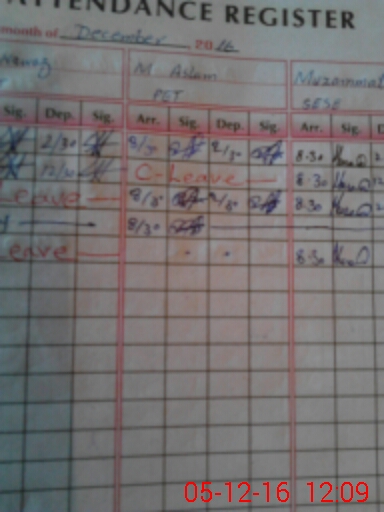 ATTENDANCE REGISTER
month of December 2016
Nawaz M. Aslam Muzammal
PET SESE
Sig. Dep. Sig. Arr. Sig. Dep. Sig. Arr. Sig. D
2/30 8/30 2/30 8:30
12/30 C-Leave 8:30
Leave 8/30 8:30
8/30
Leave 8:30
05-12-16 12:09